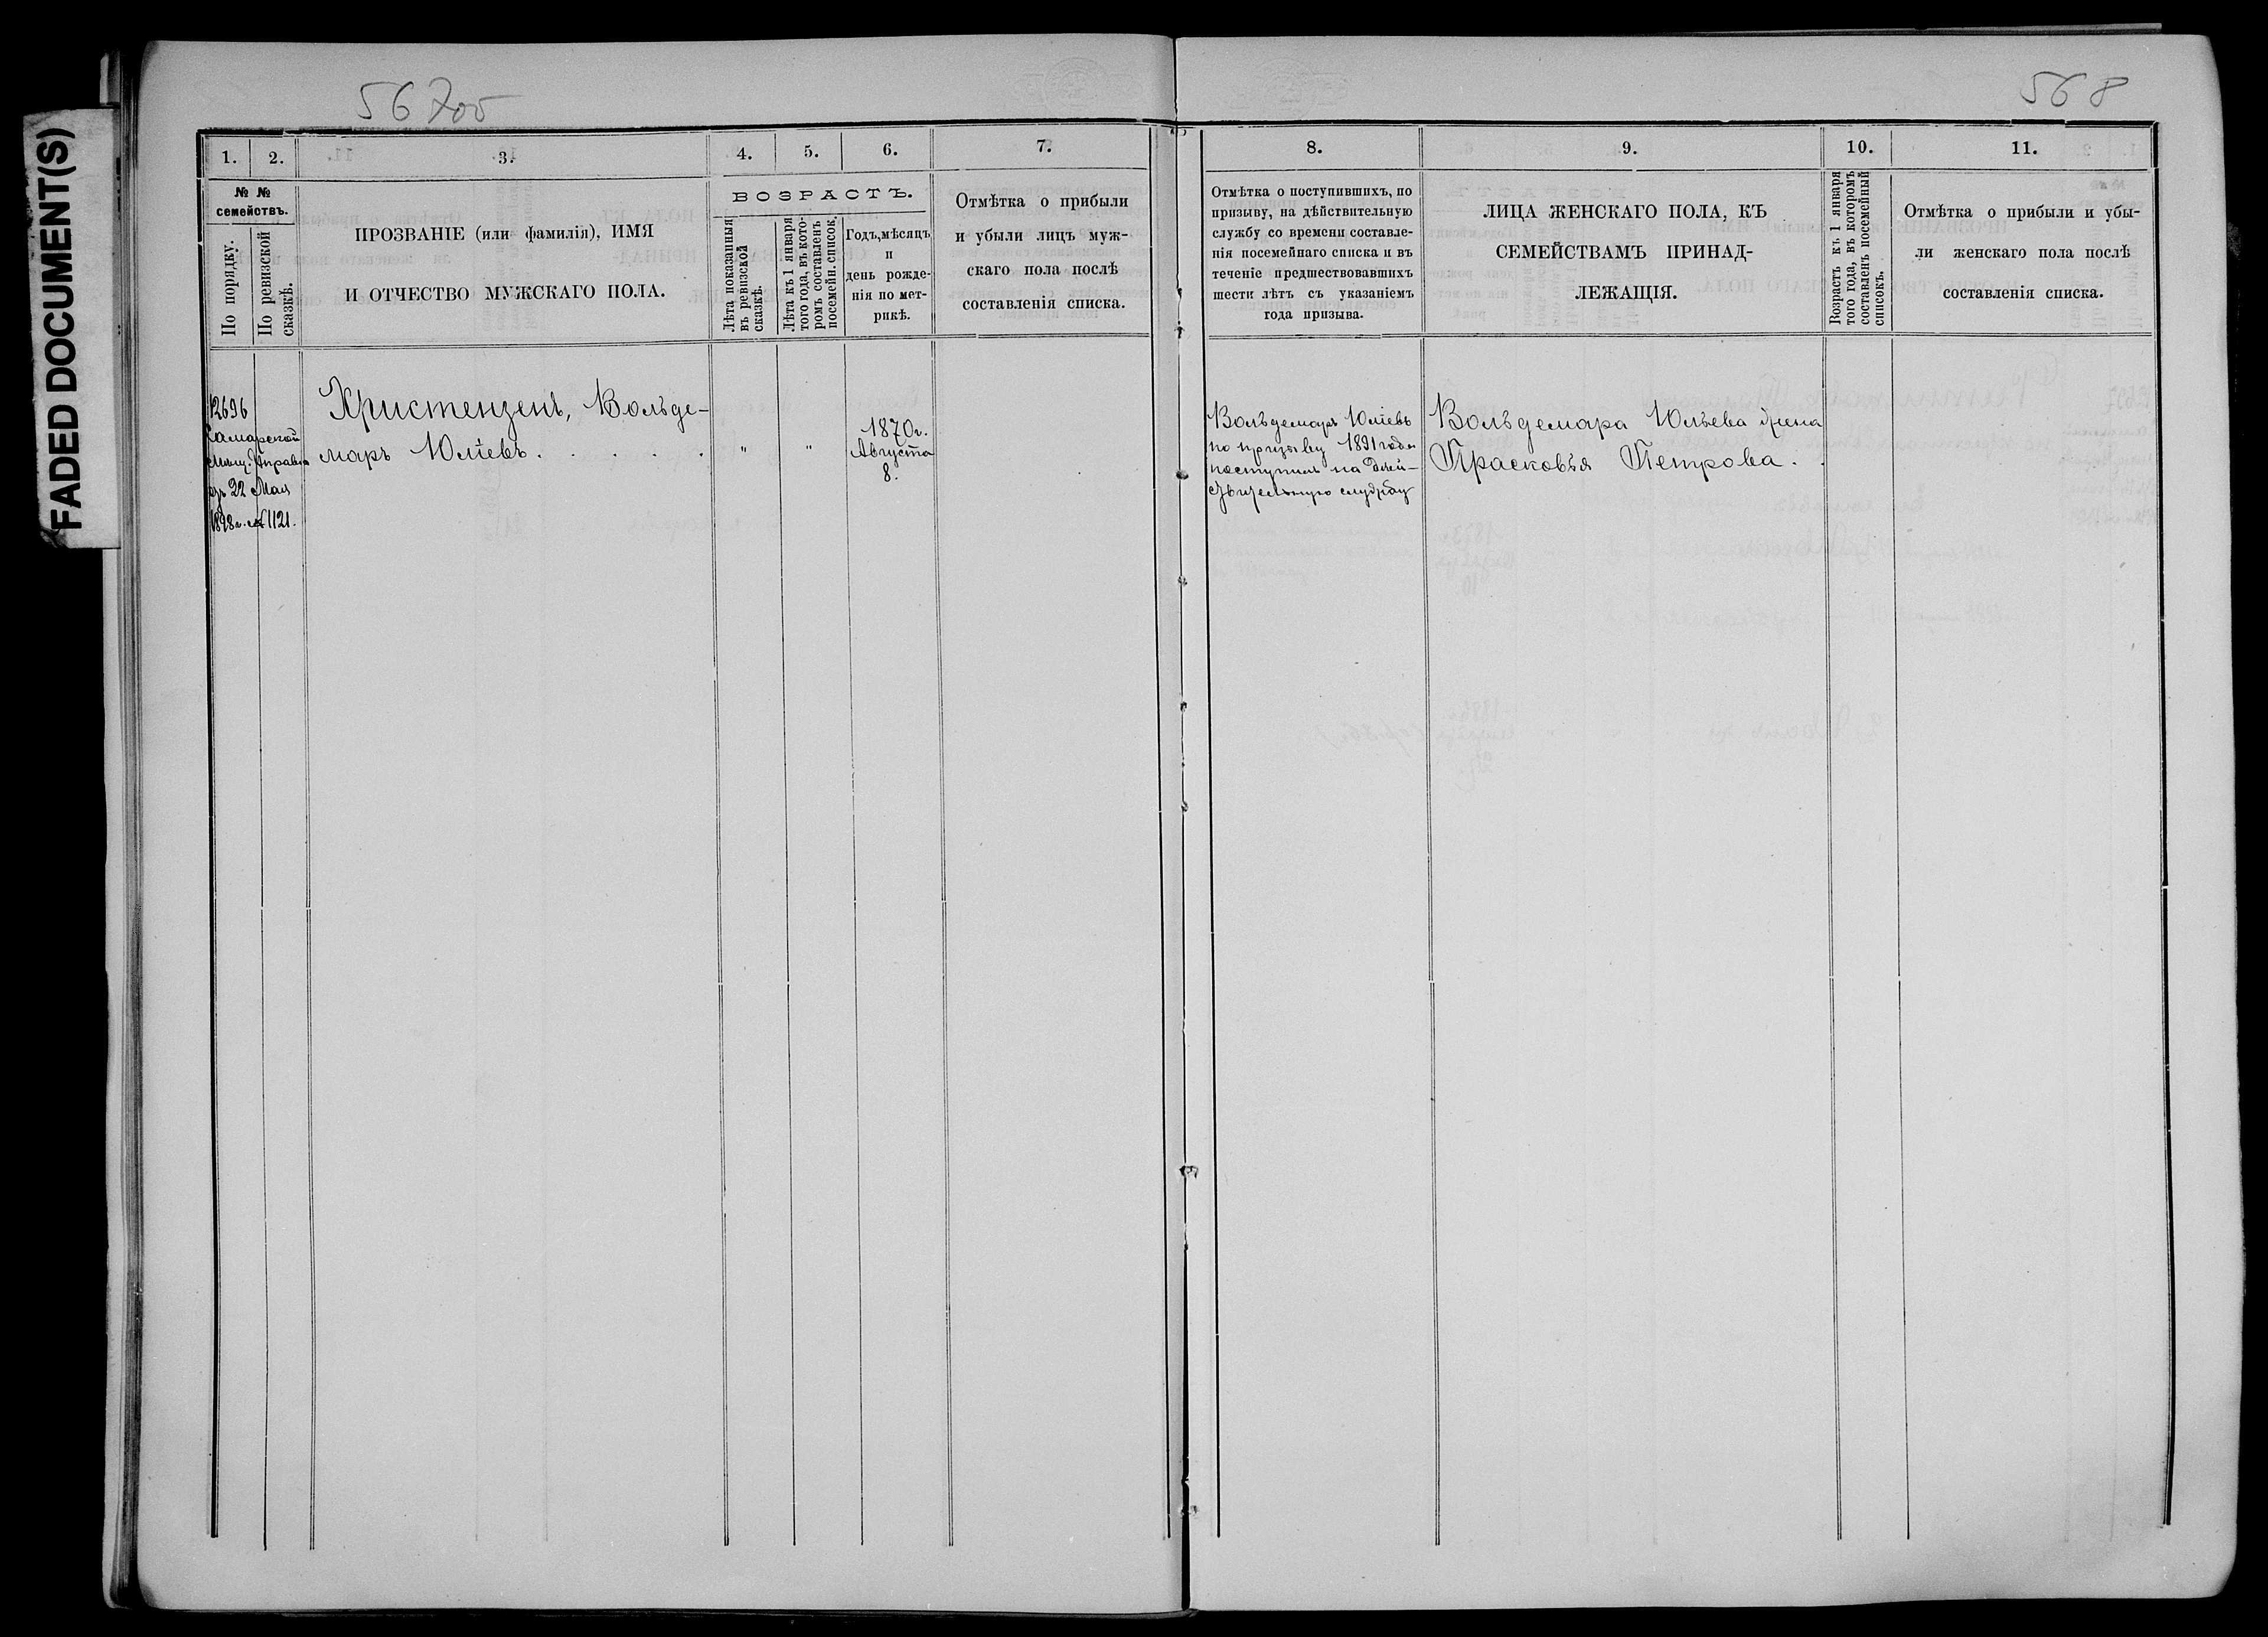 FADED DOCUMENT(S)
567об
568
1.
2.
3.
4.
5.
6.
7.
№ №
семействъ.
По порядку.
По ревизской
сказкѣ.
ПРОЗВАНІЕ (или фамилія), ИМЯ
И ОТЧЕСТВО МУЖСКАГО ПОЛА.
ВОЗРАСТЪ.
Лѣта показанныя
въ ревизской
сказкѣ.
Лѣта къ 1 января
того года, въ кото-
ромъ составленъ
посемейн. список.
Годъ, мѣсяцъ
и
день рожде-
нія по мет-
рикѣ.
Отмѣтка о прибыли
и убыли лицъ муж-
скаго пола послѣ
составленія списка.
12696
Самарской
Мѣщ. Управы
отъ 22 Мая
1898 г. № 1121.
Христензенъ, Вольде-
маръ Юліевъ . . . . .
"
"
1870 г.
Августа
8.
8.
9.
10.
11.
Отмѣтка о поступившихъ, по
призыву, на дѣйствительную
службу со времени составле-
нія посемейнаго списка и въ
теченіе предшествовавшихъ
шести лѣтъ съ указаніемъ
года призыва.
ЛИЦА ЖЕНСКАГО ПОЛА, КЪ
СЕМЕЙСТВАМЪ ПРИНАД-
ЛЕЖАЩІЯ.
Возрастъ къ 1 января
того года, въ которомъ
составленъ посемейный
списокъ.
Отмѣтка о прибыли и убы-
ли женскаго пола послѣ
составленія списка.
Вольдемаръ Юліевъ
по призыву 1891 года
поступилъ на дѣй-
ствительную службу
Вольдемара Юльева жена
Прасковья Петрова . .